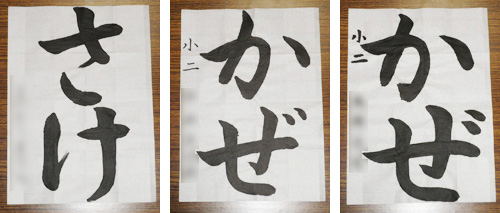 さけ
小二
かぜ
小二
かぜ